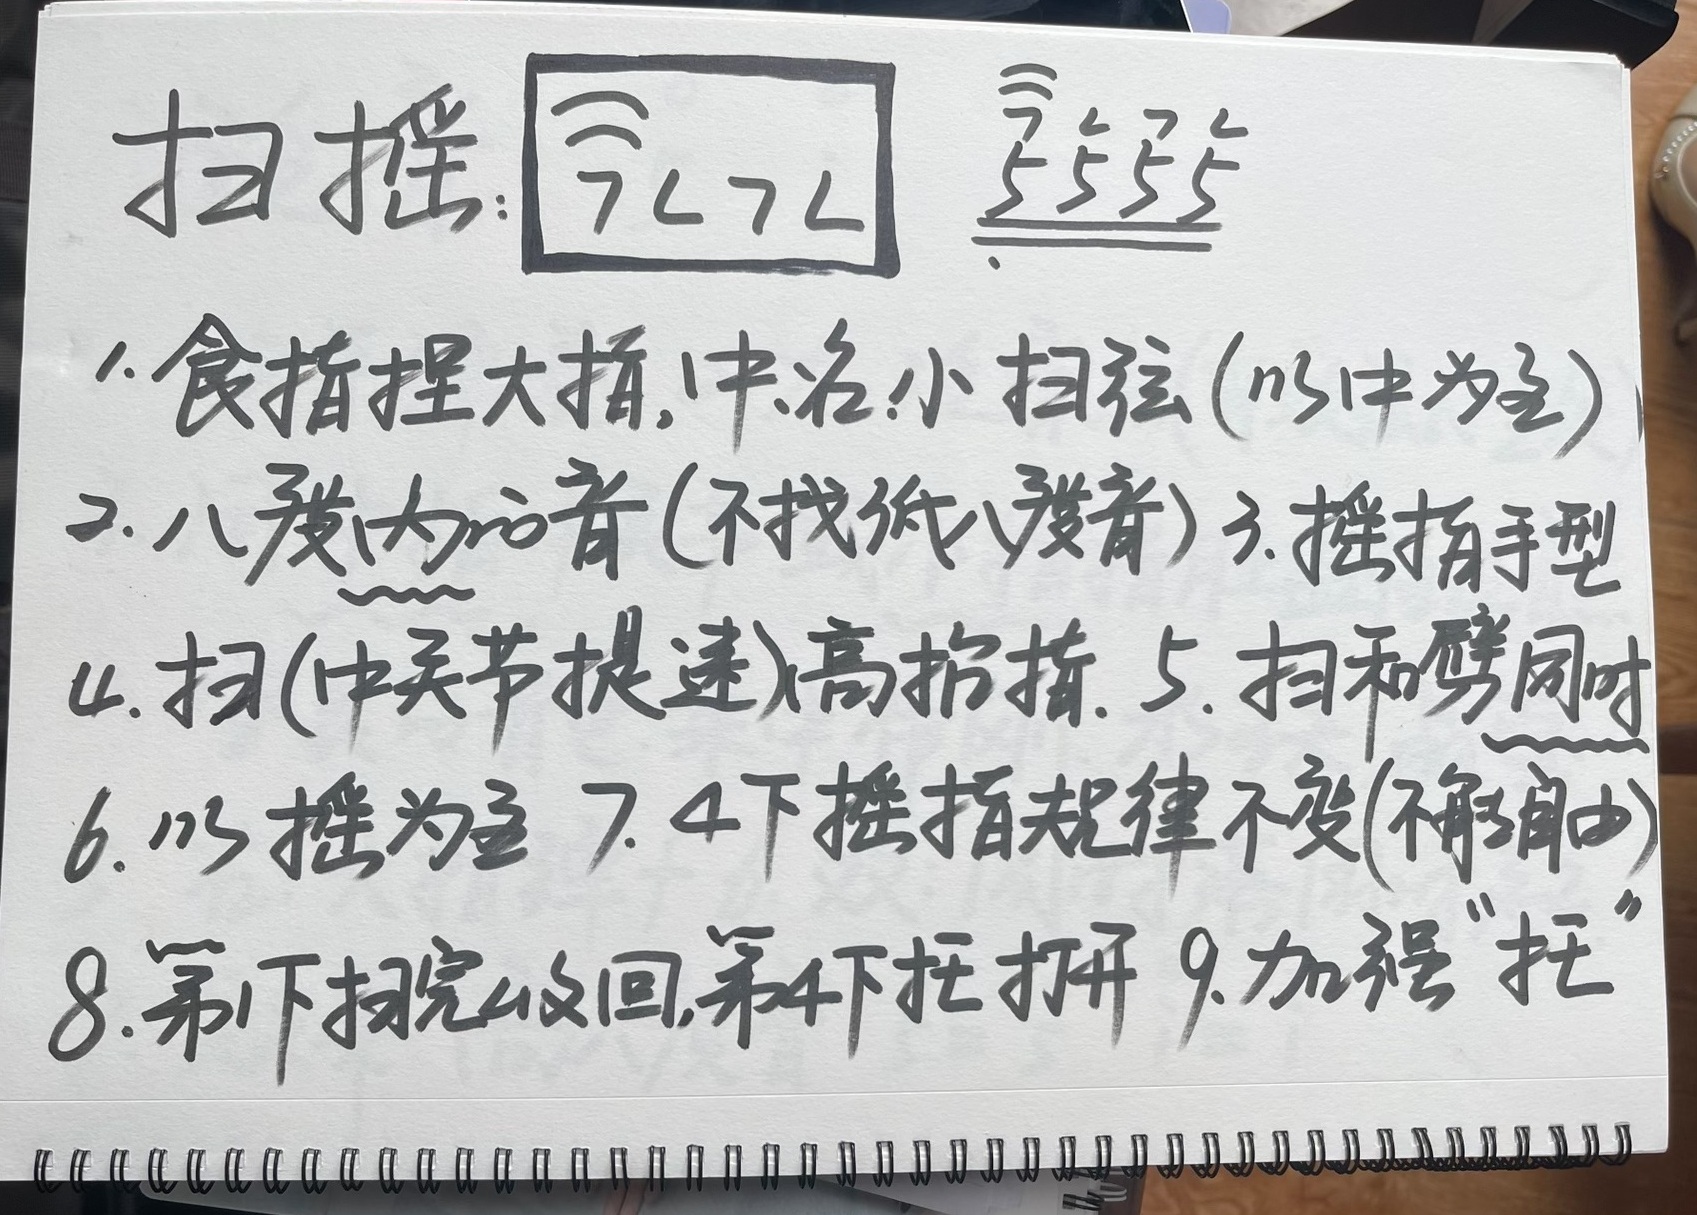 扫摇: ㄱㄥㄱㄥ 5555
1.食指捏大指,中、名、小扫弦(以中为主)
2.八度内的音(不找低八度音) 3.摇指手型
4.扫(中关节提速)高抬指. 5.扫和劈同时
6.以摇为主 7.4下摇指规律不变(不能自由)
8.第1下扫完收回,第4下托打开 9.加强“托”